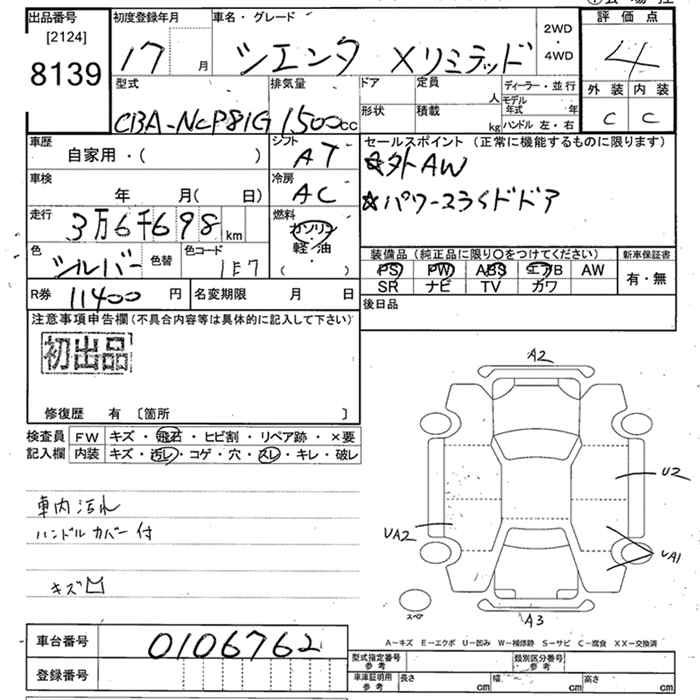 出品番号
[2124]
8139
初度登録年月
17 月
車名・グレード
シエンタ Xリミテッド
2WD
・
4WD
評価点
4
外装 内装
C C
型式
CBA-NCP81G
排気量
1500cc
ドア 定員 人
形状 積載 kg
ディーラー・並行
モデル年式 年
ハンドル 左・右
車歴
自家用・( )
シフト
AT
車検
年 月(日)
冷房
AC
走行
3万6千698 km
燃料
ガソリン
・
軽油
・
( )
色
シルバー
色替
色コード
1E7
R券 11400 円
名変期限 月 日
セールスポイント (正常に機能するものに限ります)
☆外AW
☆パワースライドドア
装備品(純正品に限り〇をつけてください)
PS PW ABS エアB AW
SR ナビ TV カワ
新車保証書
有・無
後日品
注意事項申告欄(不具合内容等は具体的に記入して下さい)
初出品
修復歴 有 [箇所 ]
検査員 FW キズ・飛石・ヒビ割・リペア跡・×要
記入欄 内装 キズ・汚レ・コゲ・穴・スレ・キレ・破レ
車内汚れ
ハンドルカバー付
キズ
A2
U2
UA2
UA1
スペア
A3
A-キズ E-エクボ U-凹み W-補修跡 S-サビ C-腐食 XX-交換済
車台番号 0106762
登録番号
型式指定番号 参考
類別区分番号 参考
車庫証明用 参考
長さ cm 幅 cm 高さ cm